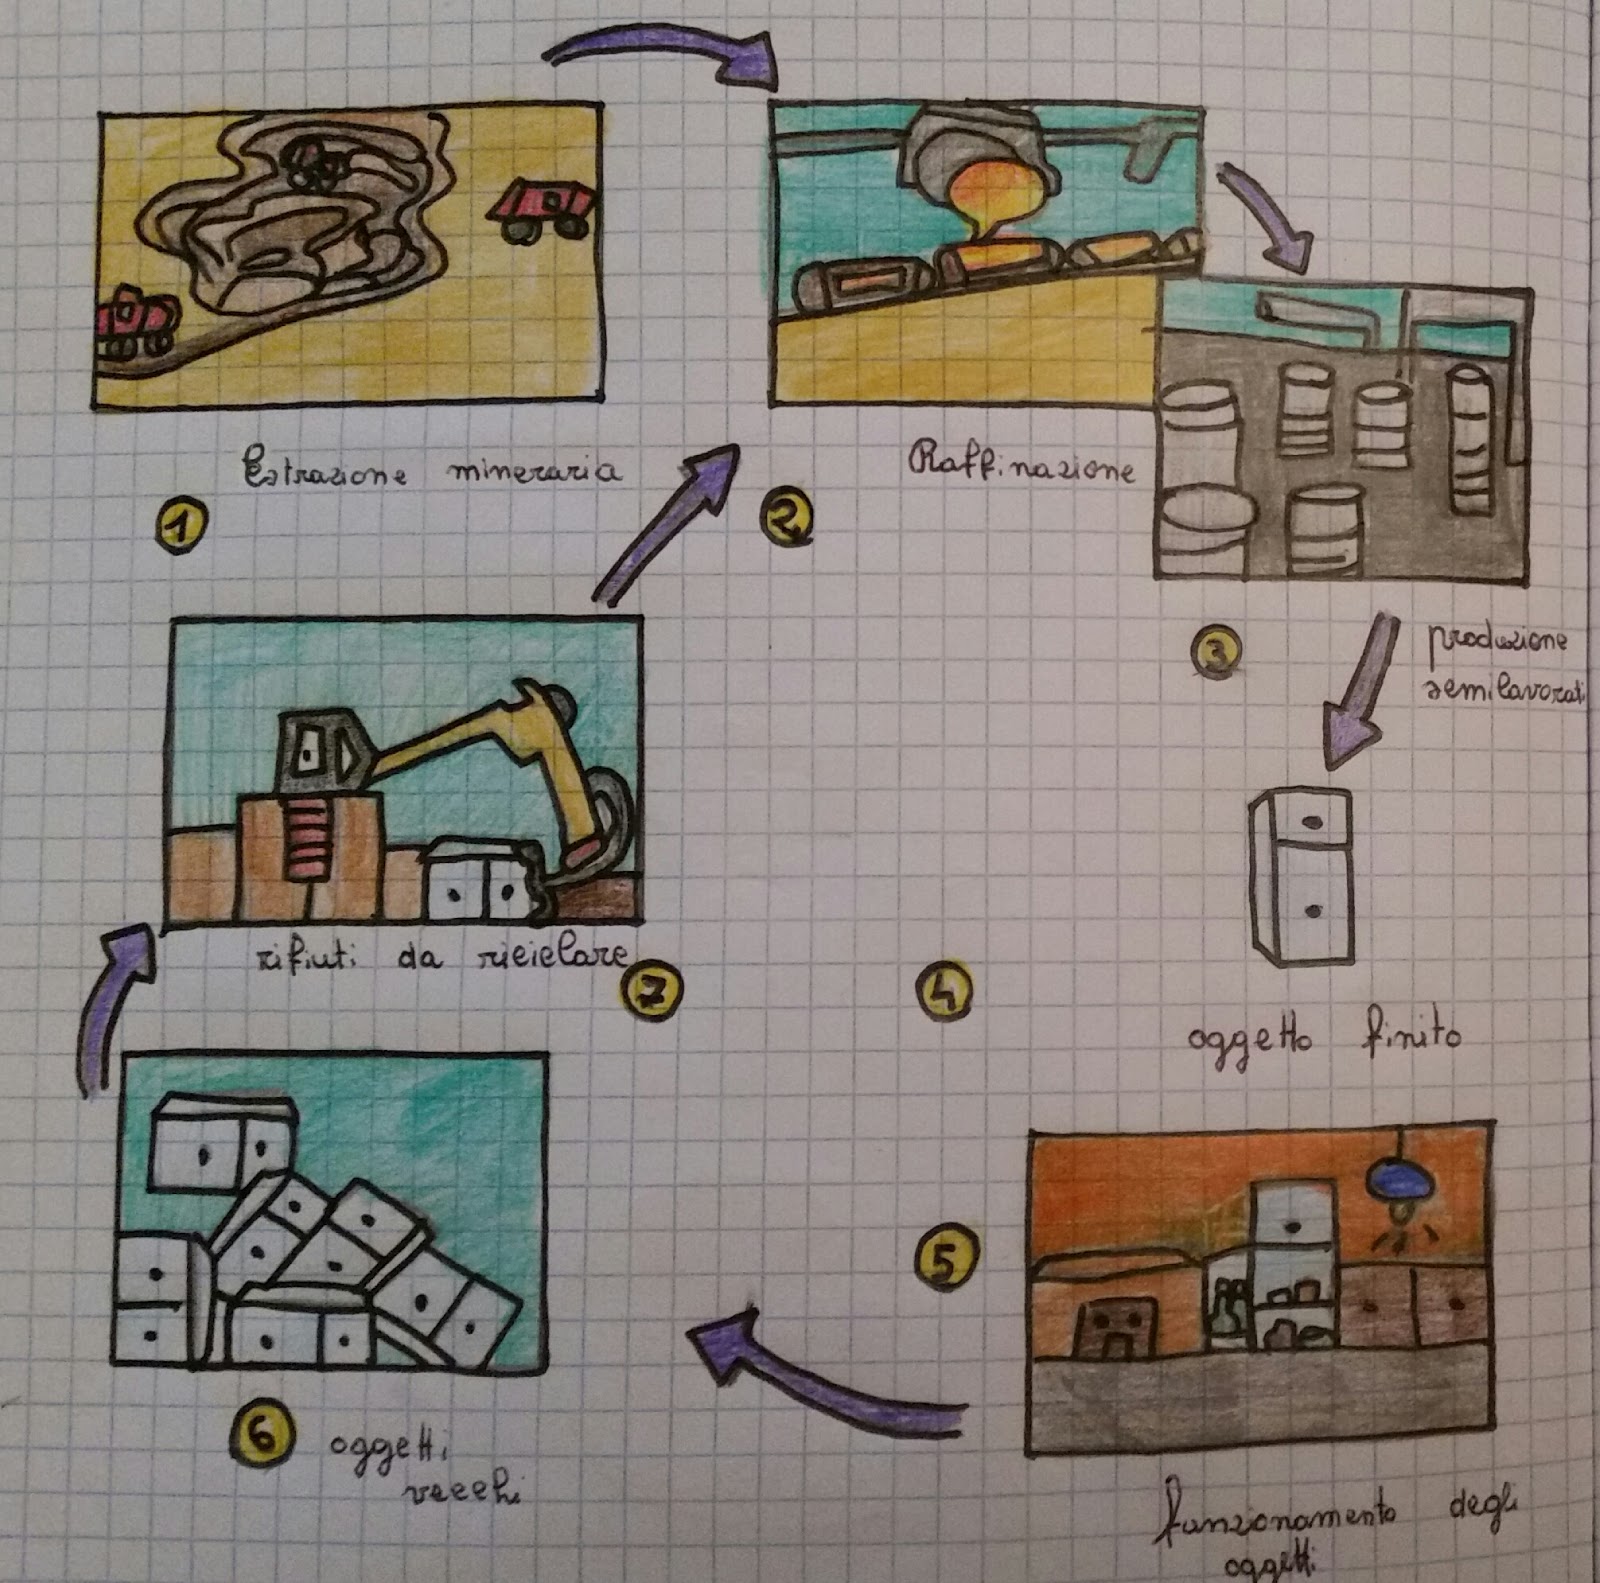 Estrazione mineraria
1
Raffinazione
2
3
produzione
semilavorati
rifiuti da riciclare
7
4
oggetto finito
5
6
oggetti
vecchi
funzionamento degli
oggetti